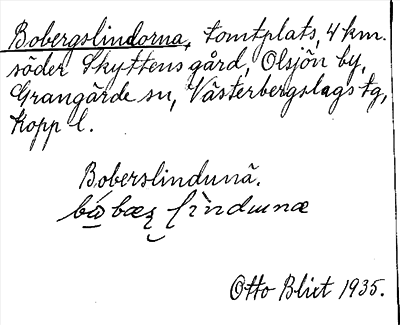 Bobergslindorna, tomtplats, 4 km.
söder Skyttens gård, Olsjön by,
Grangärde sn, Västerbergslags tg,
Kopp l.
Boberslindunä.
Otto Blixt 1935.